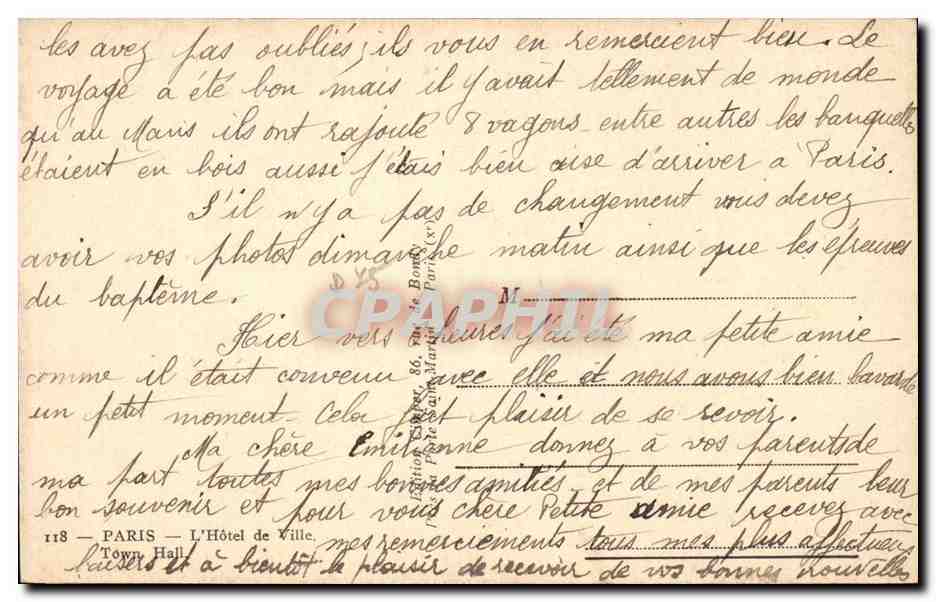 les avez pas oubliés, ils vous en remercient bien. Le
voyage a été bon mais il y avait tellement de monde
qu'au Mans ils ont rajouté 8 vagons entre autres les banquettes
étaient en bois aussi j'étais bien aise d'arriver à Paris.
S'il n'y a pas de changement vous devez
avoir vos photos dimanche matin ainsi que les épreuves
du baptême.
D 45
M
CPAPHIL
Hier vers heures j'ai été ma petite amie
comme il était convenu avec elle et nous avons bien bavardé
un petit moment. Cela fait plaisir de se revoir.
Ma chère Emilienne donnez à vos parents de
ma part toutes mes bonnes amitiés et de mes parents leur
bon souvenir et pour vous chère Petite amie recevez avec
mes remerciements tous mes plus affectueux
baisers et à bientôt le plaisir de recevoir de vos bonnes nouvelles
118 — PARIS — L'Hôtel de Ville.
Town Hall.
Edition 86, rue de Bondy
Porte Saint-Martin Paris (Xe)